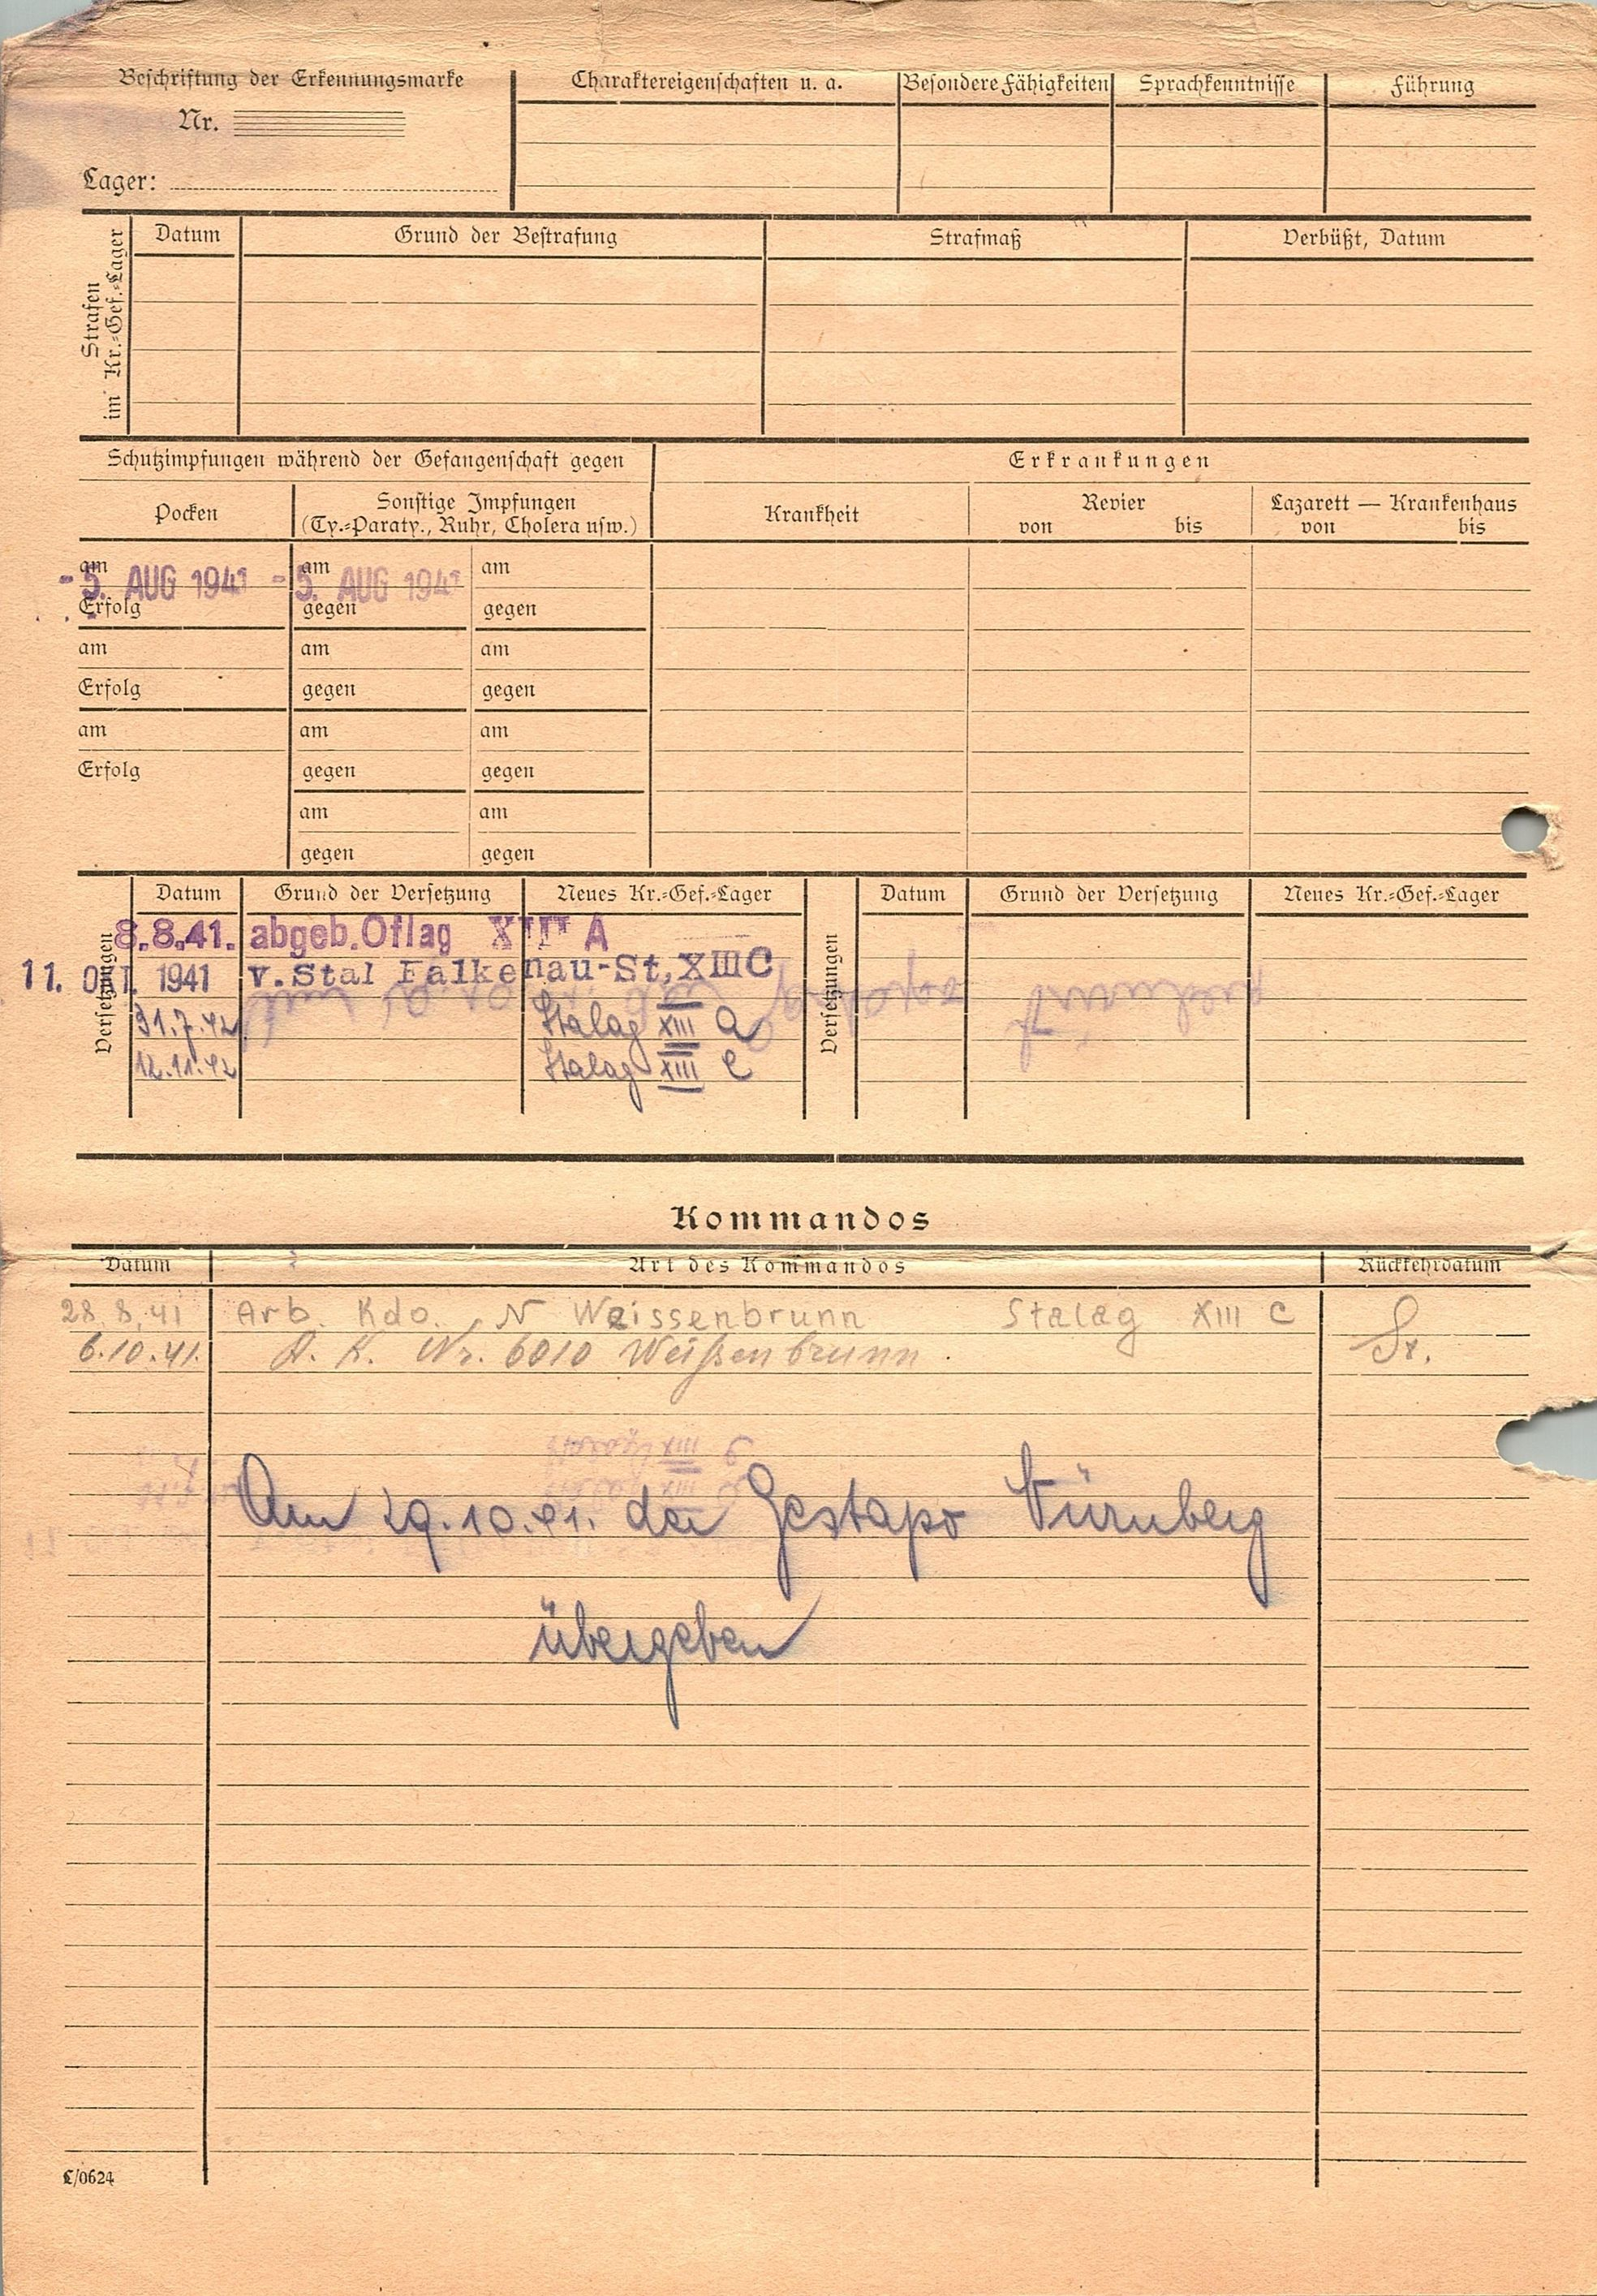 Beschriftung der Erkennungsmarke
Nr.
Lager:
Charaktereigenschaften u. a.
Besondere Fähigkeiten
Sprachkenntnisse
Führung
Strafen
im Kr.-Gef.-Lager
Datum
Grund der Bestrafung
Strafmaß
Verbüßt, Datum
Schutzimpfungen während der Gefangenschaft gegen
Erkrankungen
Pocken
Sonstige Impfungen
(Ty.-Paraty., Ruhr, Cholera usw.)
Krankheit
Revier
von bis
Lazarett — Krankenhaus
von bis
am am am
- 5. AUG 1941 - 5. AUG 1941
Erfolg gegen gegen
am am am
Erfolg gegen gegen
am am am
Erfolg gegen gegen
am am
gegen gegen
Versetzungen
Datum Grund der Versetzung Neues Kr.-Gef.-Lager
Versetzungen
Datum Grund der Versetzung Neues Kr.-Gef.-Lager
8.8.41. abgeb. Oflag XIII A
11. OKT. 1941 v. Stal Falkenau-St, XIII C
31.7.42 Stalag XIII A
12.11.42 Stalag XIII C
Kommandos
Datum Art des Kommandos Rückkehrdatum
28.8.41 Arb. Kdo. N Weissenbrunn Stalag XIII C
6.10.41. A. K. Nr. 6010 Weißenbrunn.
Am 29.10.41. der Gestapo Nürnberg
übergeben
C/0624